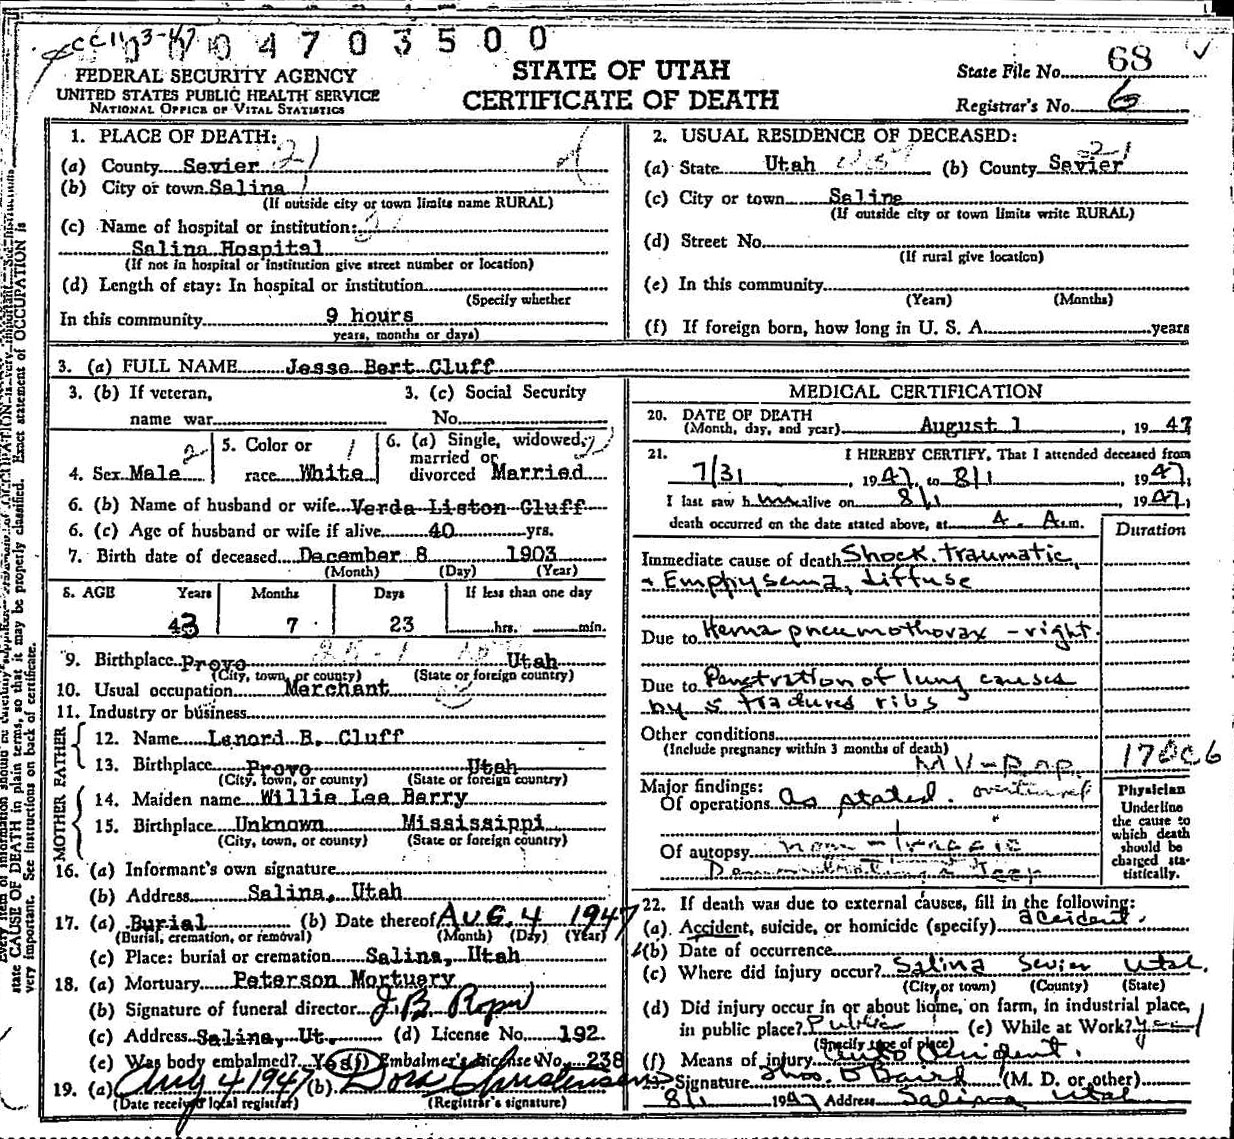 CC 11-3-47
0004703500
FEDERAL SECURITY AGENCY
UNITED STATES PUBLIC HEALTH SERVICE
NATIONAL OFFICE OF VITAL STATISTICS
STATE OF UTAH
CERTIFICATE OF DEATH
State File No. 68
Registrar's No. 6
1. PLACE OF DEATH:
(a) County Sevier 21
(b) City or town Salina 1
(If outside city or town limits name RURAL)
(c) Name of hospital or institution:
Salina Hospital
(If not in hospital or institution give street number or location)
(d) Length of stay: In hospital or institution
(Specify whether
In this community 9 hours
years, months or days)
2. USUAL RESIDENCE OF DECEASED:
(a) State Utah (b) County Sevier 21
(c) City or town Salina
(If outside city or town limits write RURAL)
(d) Street No.
(If rural give location)
(e) In this community
(Years) (Months)
(f) If foreign born, how long in U. S. A. years
3. (a) FULL NAME Jesse Bert Cluff
3. (b) If veteran, 3. (c) Social Security
name war No.
4. Sex Male 2
5. Color or 1
race White
6. (a) Single, widowed,
married or
divorced Married
6. (b) Name of husband or wife Verda Liston Cluff
6. (c) Age of husband or wife if alive 40 yrs.
7. Birth date of deceased December 8 1903
(Month) (Day) (Year)
8. AGE Years Months Days If less than one day
43 7 23 hrs. min.
9. Birthplace Provo Utah
(City, town, or county) (State or foreign country)
10. Usual occupation Merchant
11. Industry or business
FATHER
12. Name Lenord B. Cluff
13. Birthplace Provo Utah
(City, town, or county) (State or foreign country)
MOTHER
14. Maiden name Willie Lee Berry
15. Birthplace Unknown Mississippi
(City, town, or county) (State or foreign country)
16. (a) Informant's own signature
(b) Address Salina, Utah
17. (a) Burial (b) Date thereof AUG. 4 1947
(Burial, cremation, or removal) (Month) (Day) (Year)
(c) Place: burial or cremation Salina, Utah
18. (a) Mortuary Peterson Mortuary
(b) Signature of funeral director J. B. Roper
(c) Address Salina, Ut. (d) License No. 192
(e) Was body embalmed? Yes (f) Embalmer's license No. 238
19. (a) Aug 4 1947 (b) Dora Christensen
(Date received local registrar) (Registrar's signature)
MEDICAL CERTIFICATION
20. DATE OF DEATH
(Month, day, and year) August 1, 1947
21. I HEREBY CERTIFY, That I attended deceased from
7/31, 1947, to 8/1, 1947,
I last saw him alive on 8/1 1947,
death occurred on the date stated above, at 4 A.m.
Duration
Immediate cause of death Shock, traumatic,
+ Emphysema, diffuse
Due to Hema pneumothorax - right.
Due to Penetration of lung causes
by 5 fractured ribs
Other conditions
(Include pregnancy within 3 months of death)
170c6
Major findings:
Of operations As stated. overturned
Of autopsy non-traffic
Demonstrating a Jeep
Physician
Underline
the cause to
which death
should be
charged sta-
tistically.
22. If death was due to external causes, fill in the following:
(a) Accident, suicide, or homicide (specify) accident.
(b) Date of occurrence
(c) Where did injury occur? Salina Sevier Utah.
(City or town) (County) (State)
(d) Did injury occur in or about home, on farm, in industrial place,
in public place? Public (e) While at Work? yes
(Specify type of place)
(f) Means of injury Auto Accident.
23. Signature (M. D. or other)
8/1 1947 Address Salina Utah
state CAUSE OF DEATH in plain terms, so that it may be properly classified. Exact statement of OCCUPATION is
very important. See instructions on back of certificate.